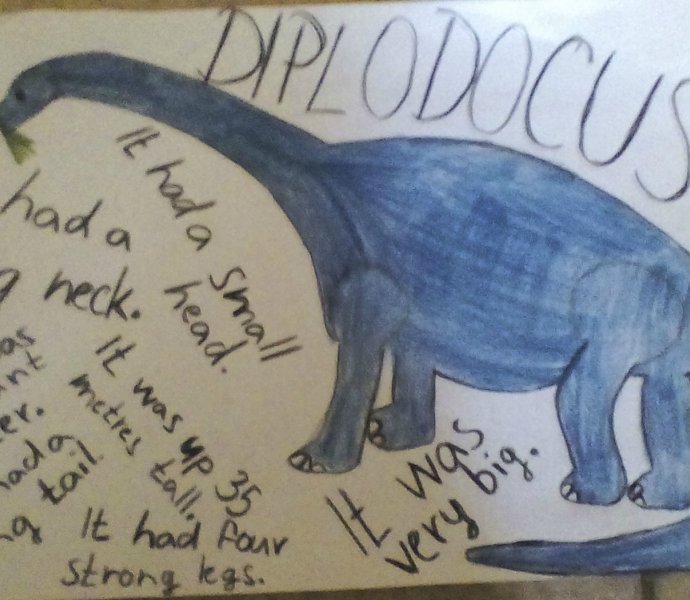 DIPLODOCUS
It had a small
head.
had a
neck.
It was up 35
metres tall.
had a
tail.
It had four
strong legs.
It was
very big.